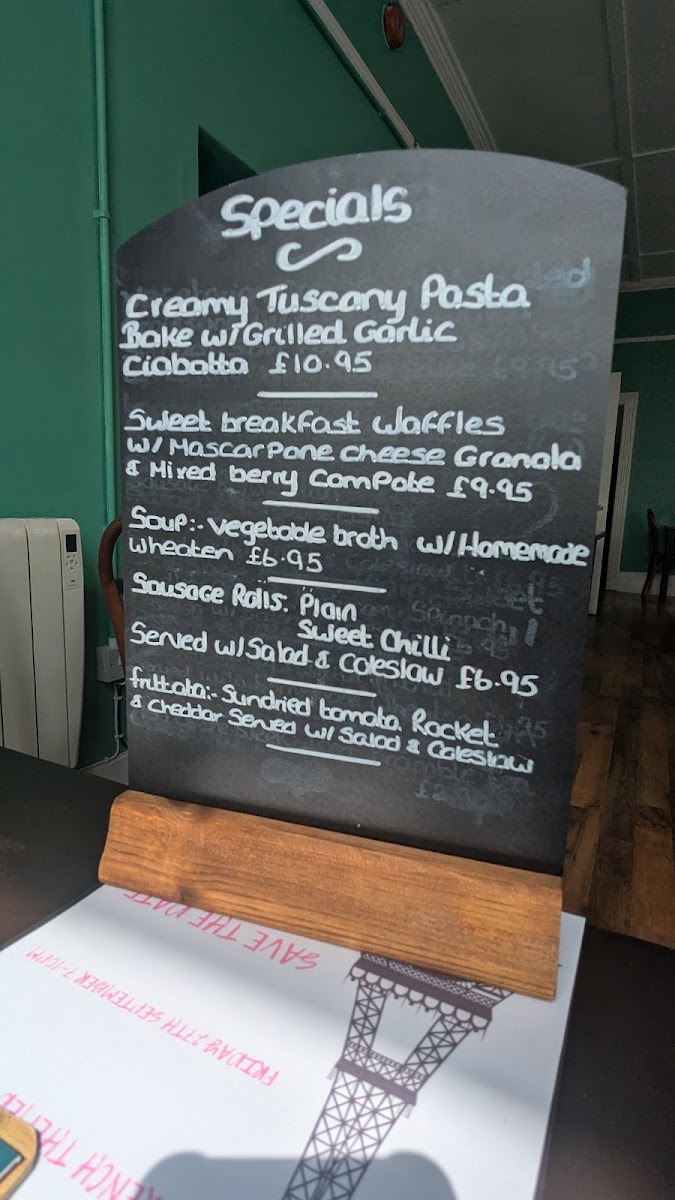 Specials
Creamy Tuscany Pasta
Bake w/Grilled Garlic
Ciabatta £10.95
Sweet breakfast Waffles
w/ Mascarpone cheese Granola
& Mixed berry Compote £9.95
Soup:- vegetable broth w/Homemade
wheaten £6.95
Sausage Rolls: Plain
Sweet Chilli
Served w/Salad & Coleslaw £6.95
frittata:- Sundried tomato, Rocket
& Cheddar Served w/ Salad & Coleslaw
SAVE THE DATE
FRIDAY 27TH SEPTEMBER 7-10PM